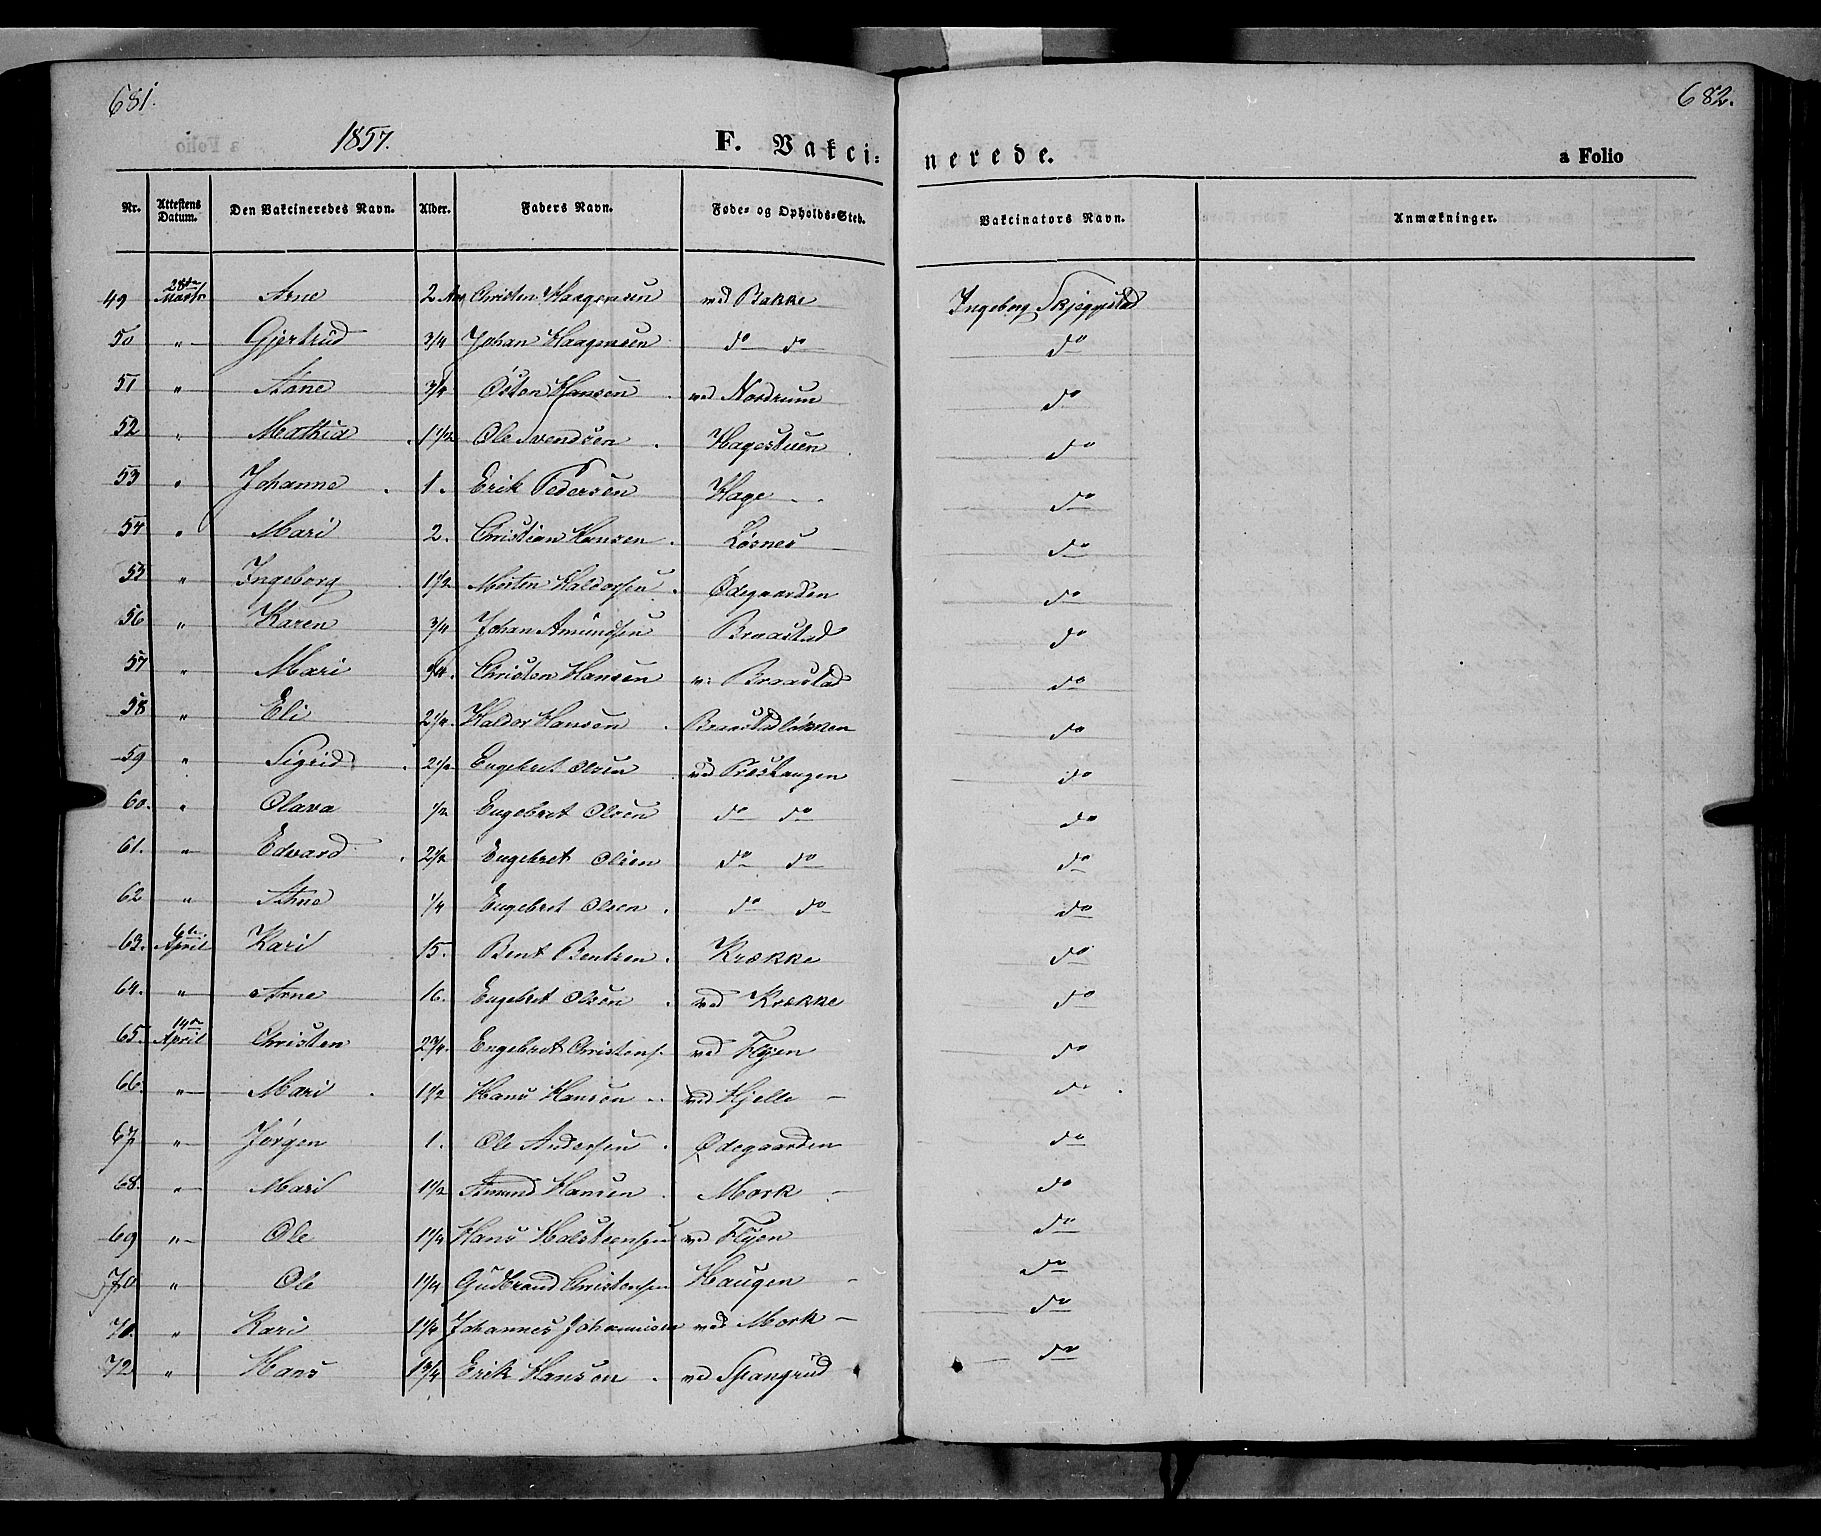 681.
682.
1857.
F. Vakci:
nerede.
a Folio
Nr.
Attestens Datum.
Den Vakcineredes Navn.
Alder.
Faders Navn.
Føde- og Opholds-Sted.
Vakcinators Navn.
Anmærkninger.
49 28de Marts Arne 2 Aar Christen Haagensen ved Bakke Ingeborg Skjeggestad
50 " Gjertrud 3/4 Johan Haagensen do do do
51 " Anne 3/4 Østen Hansen ved Nordrum do
52 " Mathia 1 1/2 Ole Svendsen Hagestuen do
53 " Johanne 1. Erik Pedersen Hage do
54 " Mari 2. Christian Hansen Løsnes do
55 " Ingeborg 1 1/2 Morten Haldorsen Ødegaarden do
56 " Karen 3/4 Johan Amundsen Braastad do
57 " Mari Christen Hansen v: Braastad do
58 " Eli 2 1/4. Haldor Hansen Braastadløkken do
59 " Sigrid 2 1/2 Engebret Olsen ved Prestangen do
60. " Olava 1/2 Engebret Olsen do do do
61. " Edvard 2 1/2 Engebret Olsen do do do
62 " Anne 1/4 Engebret Olsen do do do
63. 6te April Kari 15. Bent Bentsen Krække do
64. " Arne 16. Engebret Olsen ved Krække do
65. 14de April Christen 2 3/4. Engebret Christens. ved Flyen do
66. " Mari 1 1/2 Hans Hansen ved Hjelle do
67 " Jørgen 1. Ole Andersen Ødegaarden do
68. " Mari 1 1/2 Amund Hansen Mork do
69 " Ole 1 1/4 Hans Halsteensen ved Flyen do
70 " Ole 1 1/4 Gudbrand Christensen Haugen do
71. " Kari 1 1/4 Johannes Johannesen ved Mork do
72 " Hans 1 3/4 Erik Hansen ved Spangrud do